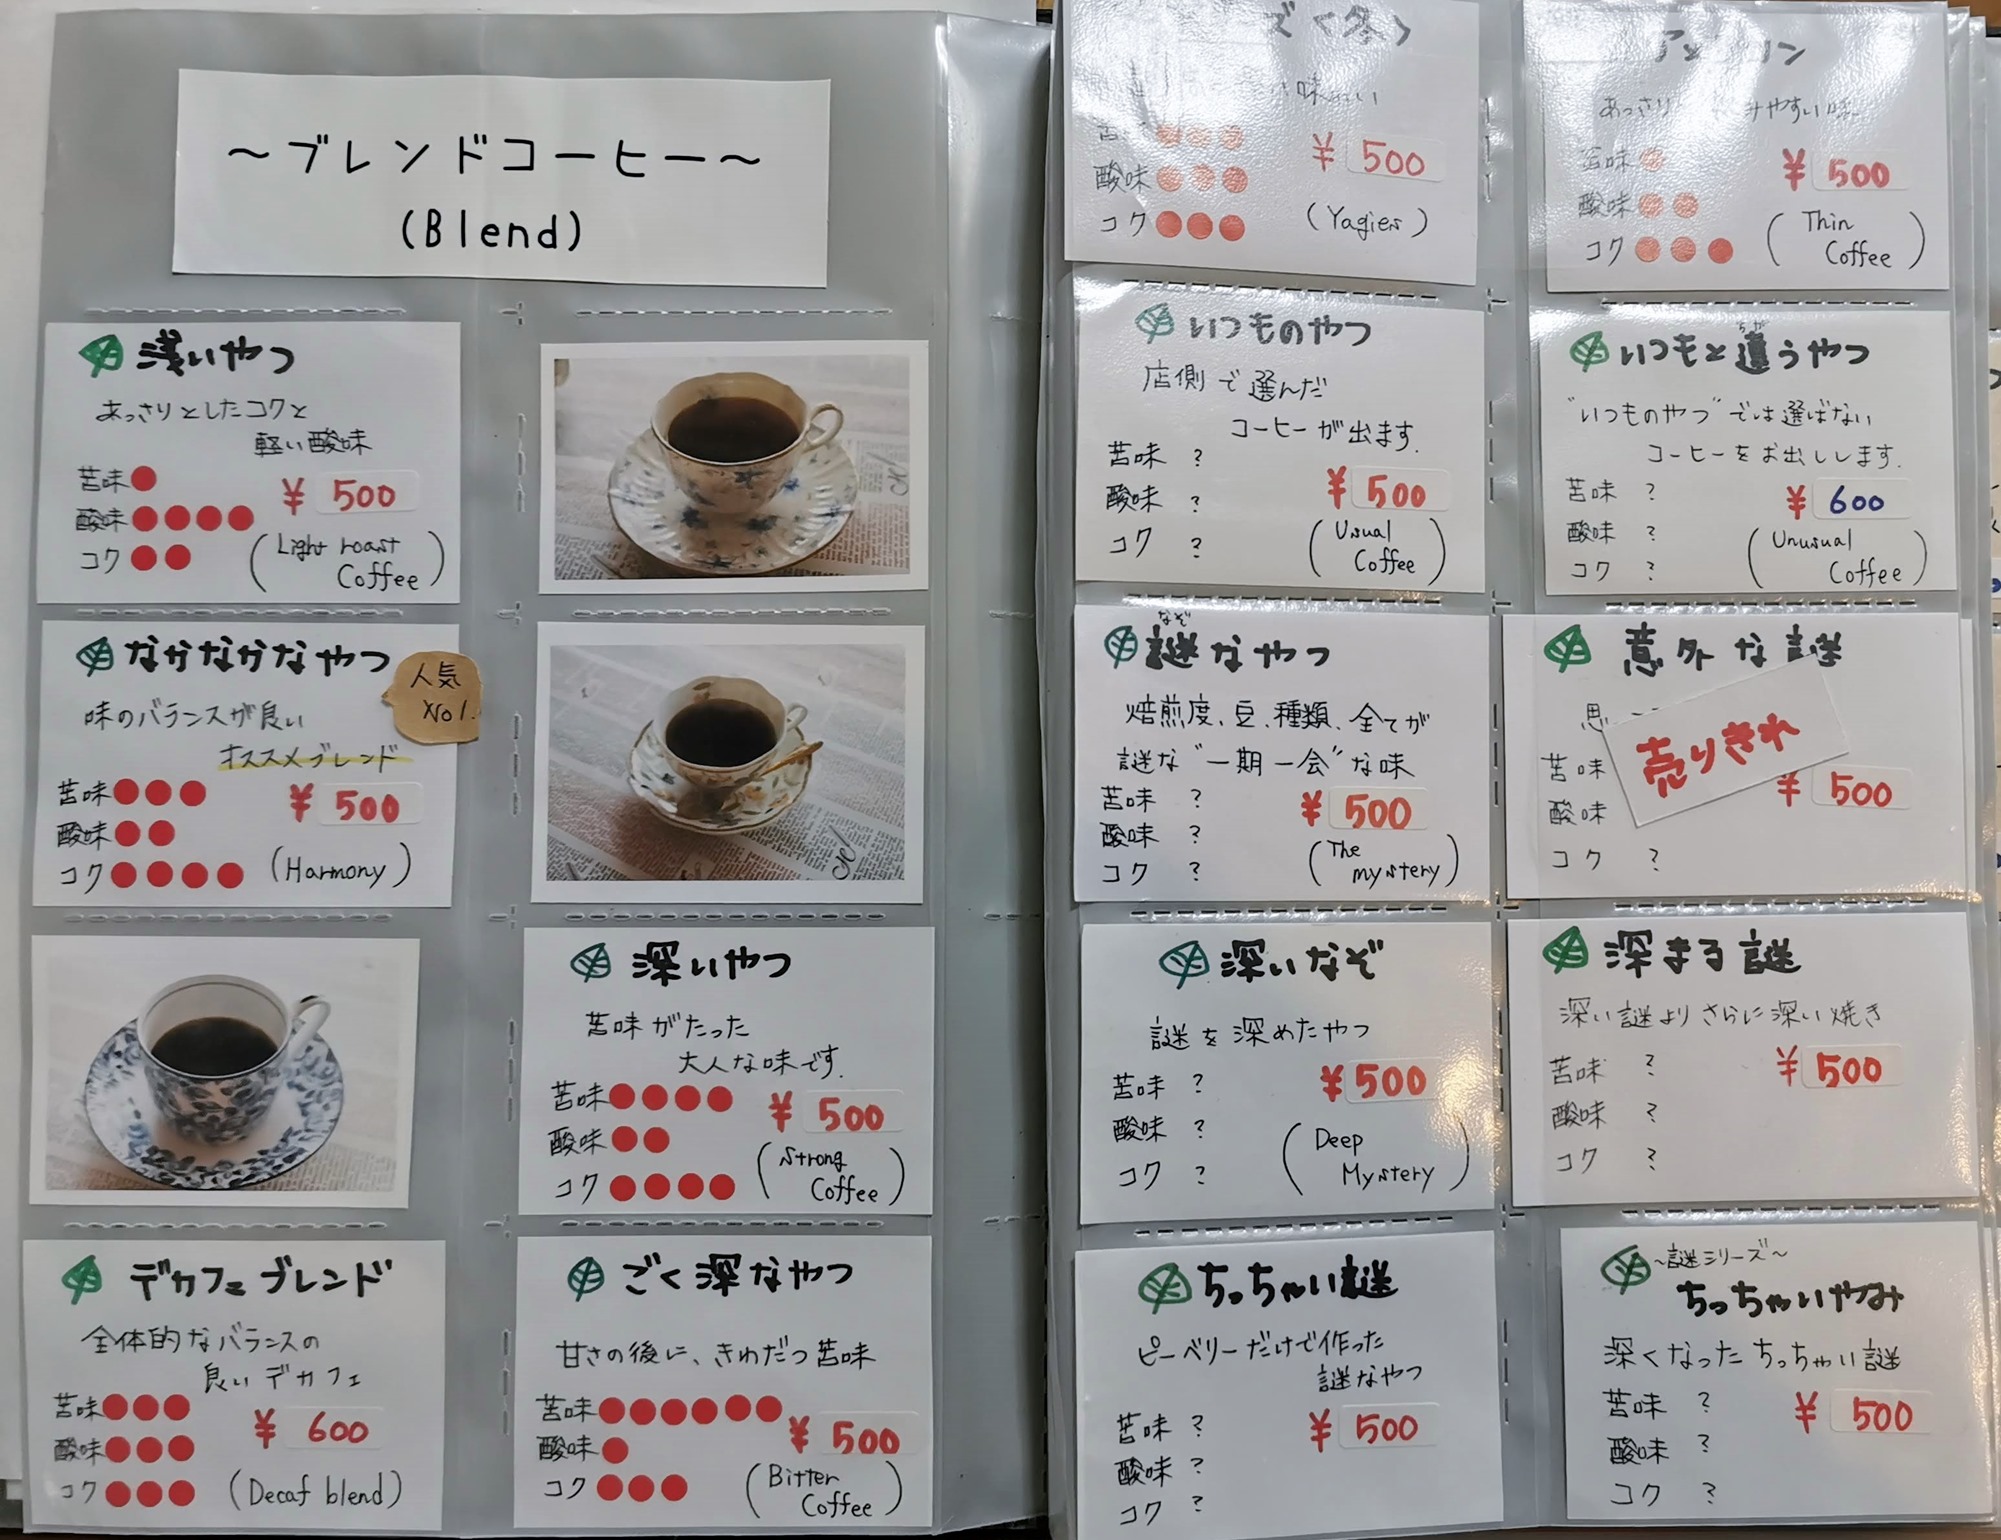 ～ブレンドコーヒー～
(Blend)
浅いやつ
あっさりとしたコクと
軽い酸味
苦味
¥ 500
酸味
コク
(Light roast
Coffee)
なかなかなやつ
人気
No1.
味のバランスが良い
オススメブレンド
苦味
¥ 500
酸味
コク
(Harmony)
深いやつ
苦味がたった
大人な味です.
苦味
¥ 500
酸味
コク
(Strong
Coffee)
デカフェブレンド
全体的なバランスの
良いデカフェ
苦味
¥ 600
酸味
コク
(Decaf blend)
ごく深なやつ
甘さの後に、きわだつ苦味
苦味
¥ 500
酸味
コク
(Bitter
Coffee)
¥ 500
酸味
コク
(Yagien)
あっさり
苦味
¥ 500
酸味
コク
(Thin
Coffee)
いつものやつ
店側で選んだ
コーヒーが出ます.
苦味 ?
酸味 ?
¥ 500
コク ?
(Usual
Coffee)
いつもと違うやつ
ちが
"いつものやつ"では選ばない
コーヒーをお出しします.
苦味 ?
¥ 600
酸味 ?
コク ?
(Unusual
Coffee)
なぞ
謎なやつ
焙煎度、豆、種類、全てが
謎な"一期一会"な味
苦味 ?
¥ 500
酸味 ?
コク ?
(The
mystery)
意外な謎
思
売りきれ
苦味
¥ 500
酸味
コク ?
深いなぞ
謎を深めたやつ
苦味 ?
¥ 500
酸味 ?
コク ?
(Deep
Mystery)
深まる謎
深い謎よりさらに深い焼き
苦味 ?
¥ 500
酸味 ?
コク ?
ちっちゃい謎
ピーベリーだけで作った
謎なやつ
苦味 ?
¥ 500
酸味 ?
コク ?
～謎シリーズ～
ちっちゃいやみ
深くなったちっちゃい謎
苦味 ?
¥ 500
酸味 ?
コク ?